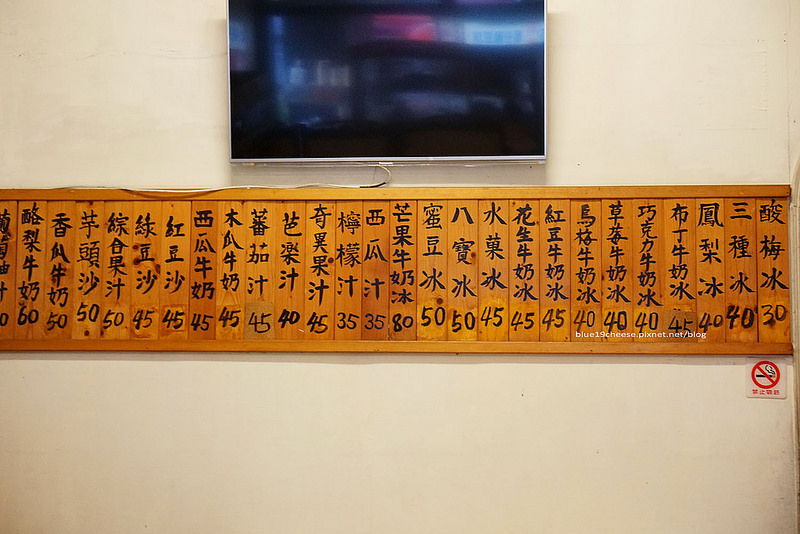 酸梅冰30
三種冰40
鳳梨冰40
布丁牛奶冰45
巧克力牛奶冰40
草莓牛奶冰40
烏梅牛奶冰40
紅豆牛奶冰45
花生牛奶冰45
水菓冰45
八寶冰50
蜜豆冰50
芒果牛奶冰80
西瓜汁35
檸檬汁35
奇異果汁45
芭樂汁40
蕃茄汁45
木瓜牛奶45
西瓜牛奶45
紅豆沙45
綠豆沙45
綜合果汁50
芋頭沙50
香瓜牛奶50
酪梨牛奶60
blue19cheese.pixnet.net/blog
禁止吸菸